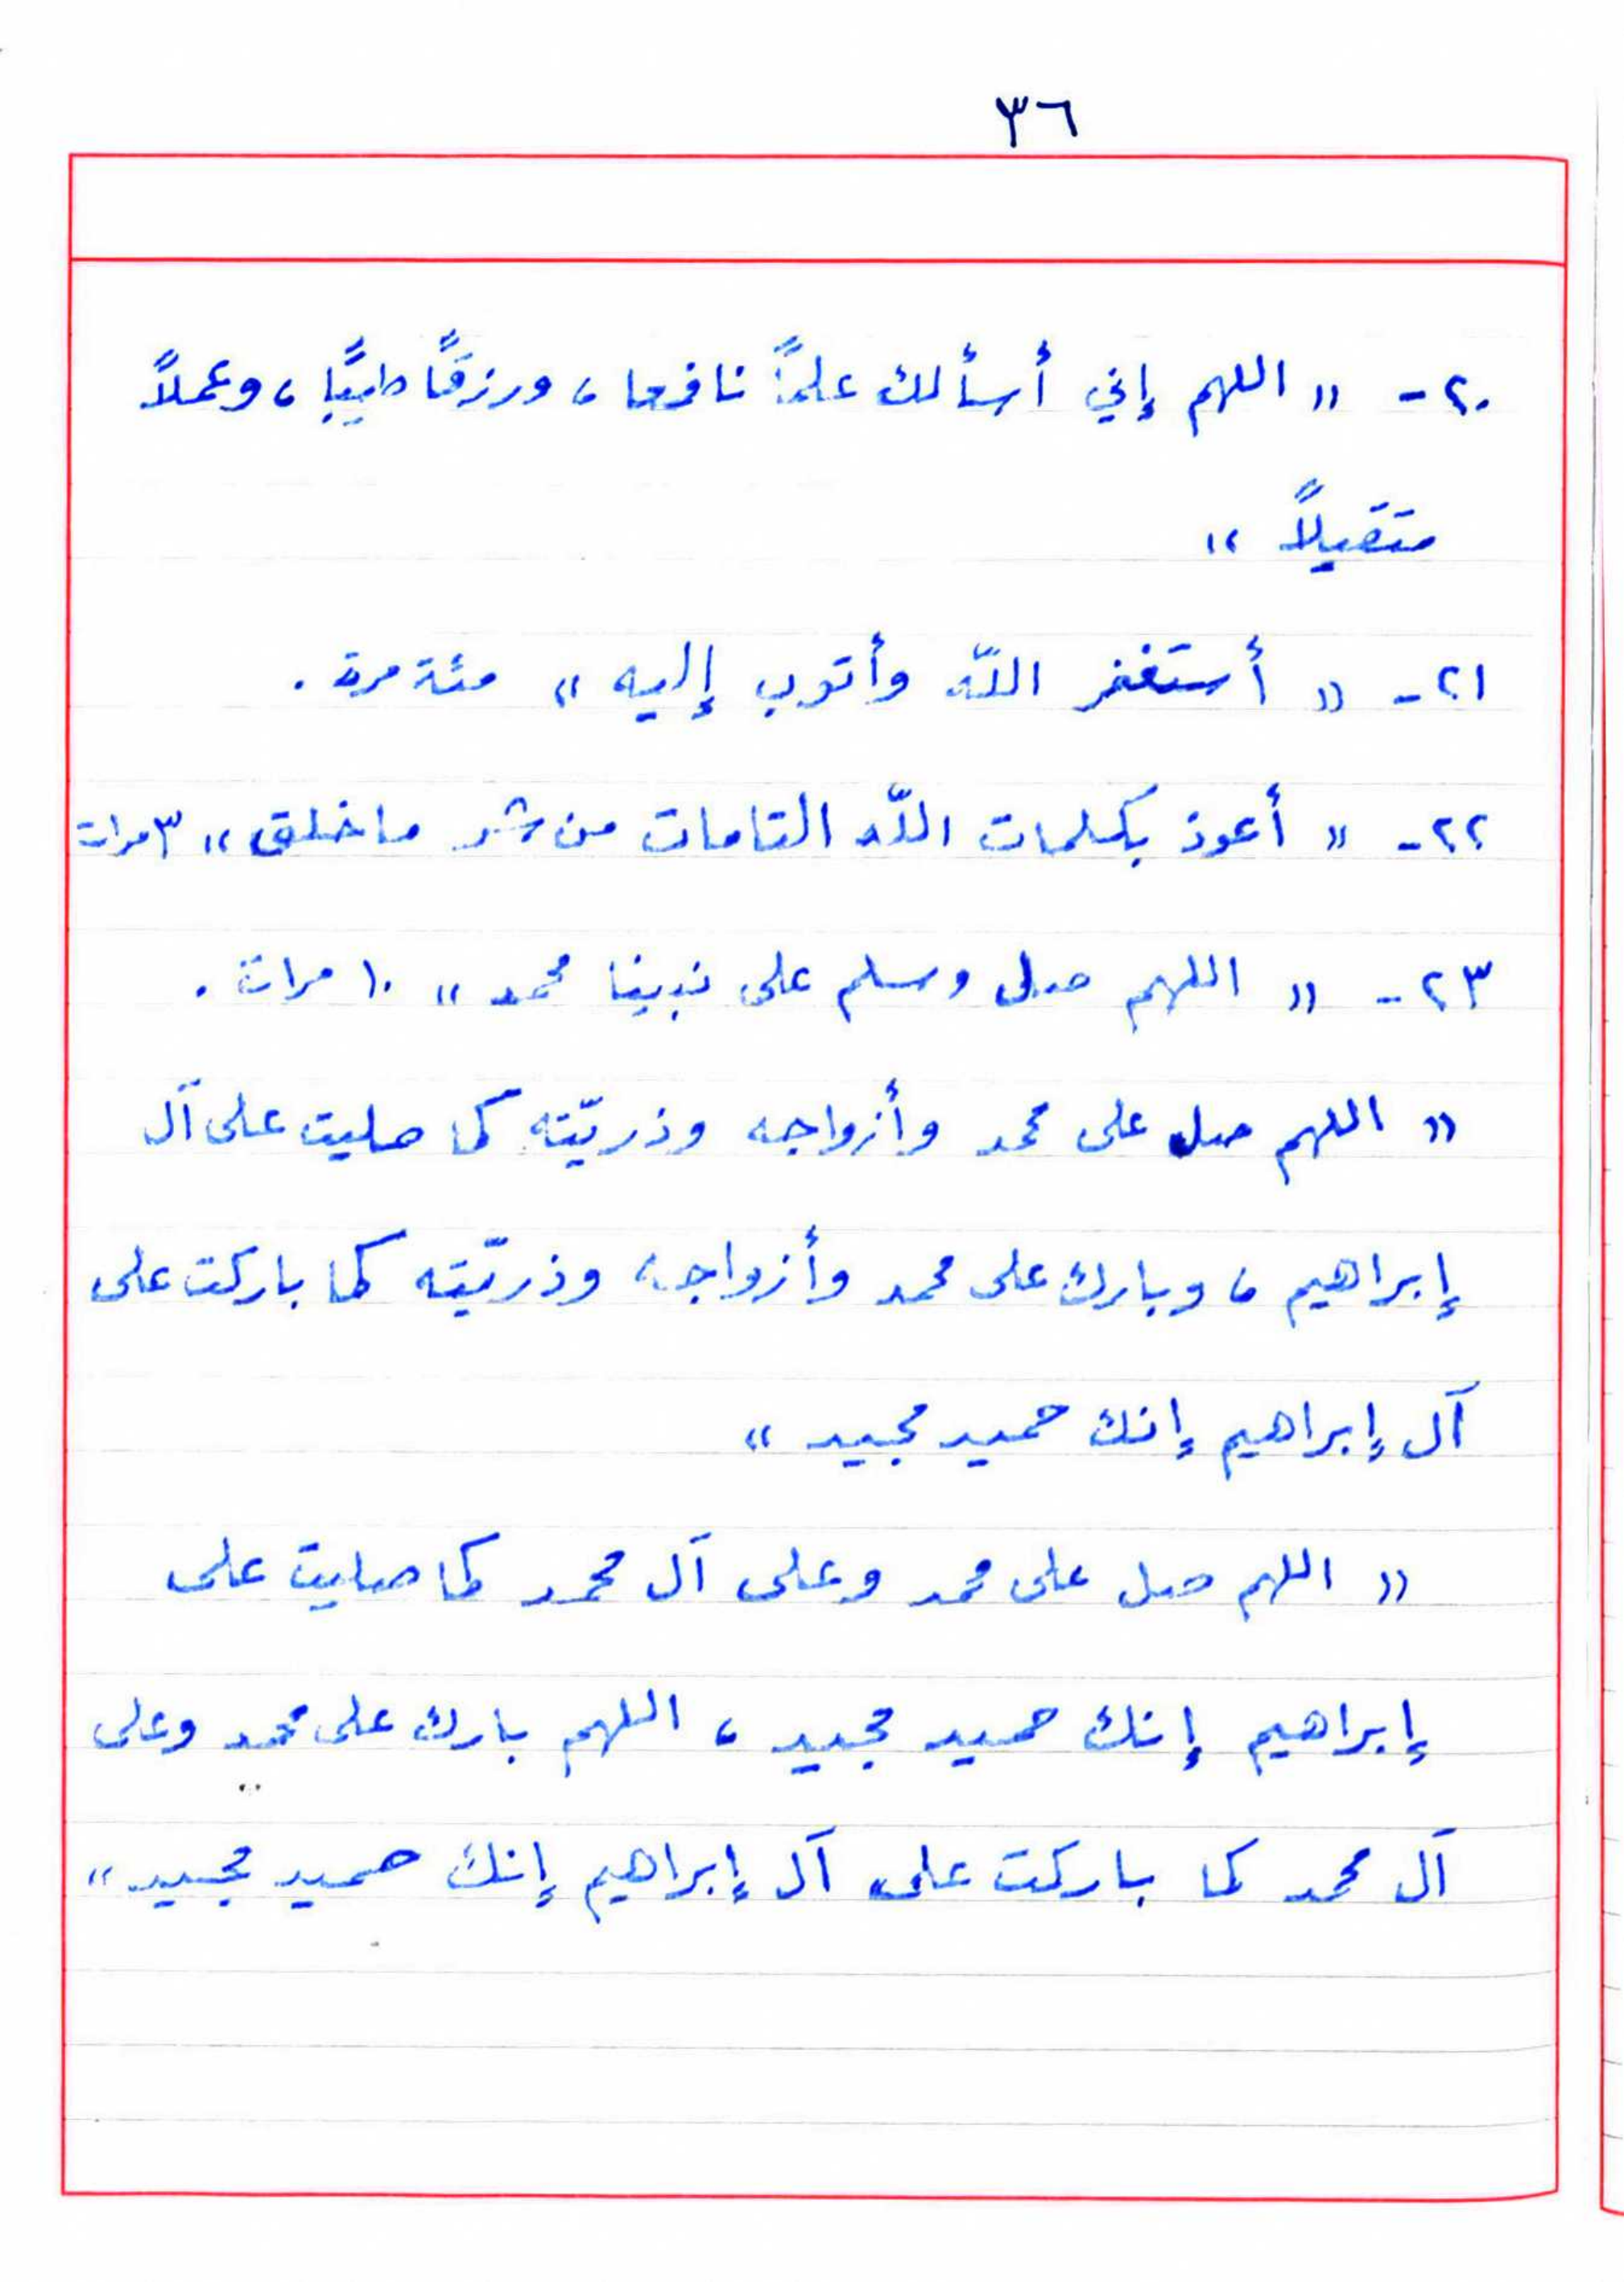 ٣٦
٢٠- «اللهم إني أسألك علمًا نافعا، ورزقًا طيبًا، وعملاً
متقبلاً»
٢١- «أستغفر اللّه وأتوب إليه» مئة مرة.
٢٢- «أعوذ بكلمات اللّه التامات من شر ما خلق» ٣ مرات
٢٣- «اللهم صل وسلم على نبينا محمد» ١٠ مرات.
«اللهم صل على محمد وأزواجه وذريّته كما صليت على آل
إبراهيم، وبارك على محمد وأزواجه وذريّته كما باركت على
آل إبراهيم إنك حميد مجيد»
«اللهم صل على محمد وعلى آل محمد كما صليت على
إبراهيم إنك حميد مجيد، اللهم بارك على محمد وعلى
آل محمد كما باركت على آل إبراهيم إنك حميد مجيد»